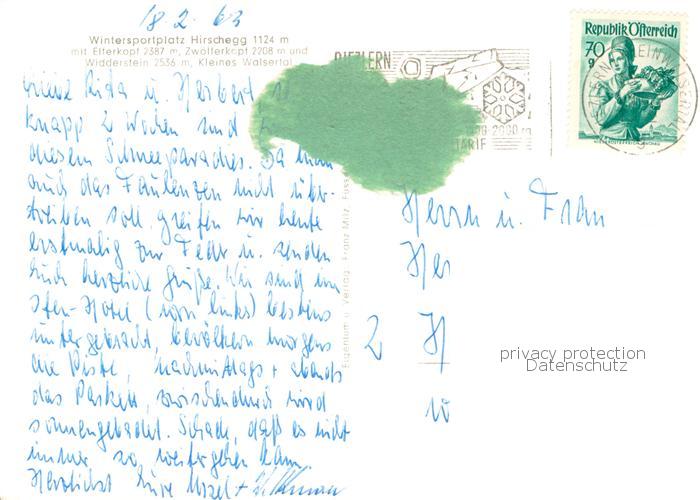 18.2.63
Wintersportplatz Hirschegg 1124 m
mit Elferkopf 2387 m, Zwölferkopf 2208 m und
Widderstein 2536 m, Kleines Walsertal
RIEZLERN
Republik Österreich
70
g
NIEDERÖSTERREICH, WACHAU
2000 m
TARIF
Liebe Rita u. Herbert
knapp 2 Wochen sind
diesem Schneeparadies. Da man
auch das Faulenzen nicht über-
treiben soll, greifen wir heute
erstmalig zur Feder u. senden
Euch herzliche Grüße. Wir sind im
Ifen-Hotel (vorn links) bestens
untergebracht, bevölkern morgens
die Piste, nachmittags + abends
das Parkett, zwischendurch wird
sonnengebadet. Schade, daß es nicht
immer so weitergehen kann.
Herzlichst Eure Ursel +
Eigentum u. Verlag Franz Milz, Füssen
Herrn u. Frau
Her
2 H
privacy protection
Datenschutz